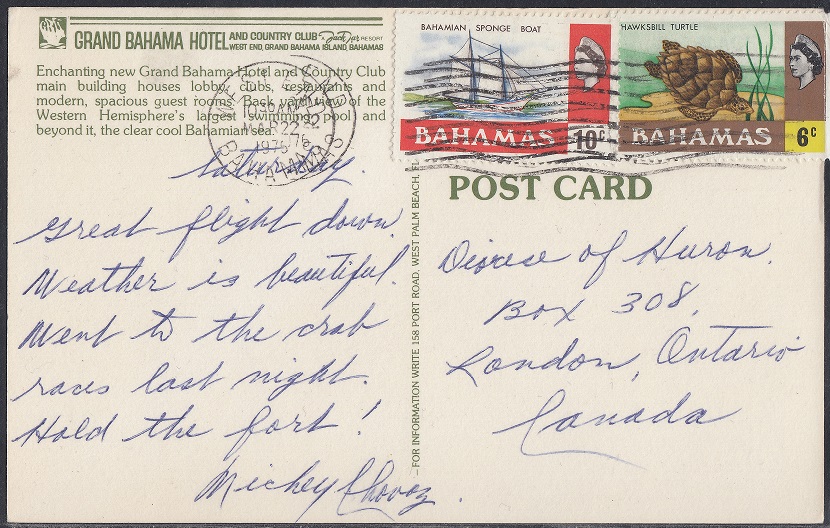 GRAND BAHAMA HOTEL AND COUNTRY CLUB
A Jack Tar RESORT
WEST END, GRAND BAHAMA ISLAND, BAHAMAS
Enchanting new Grand Bahama Hotel and Country Club
main building houses lobby, clubs, restaurants and
modern, spacious guest rooms. Back yard view of the
Western Hemisphere's largest swimming pool and
beyond it, the clear cool Bahamian
MAR 22
1976
BAHAMAS
BAHAMIAN SPONGE BOAT
BAHAMAS 10c
HAWKSBILL TURTLE
BAHAMAS 6c
POST CARD
Saturday.
Great flight down.
Weather is beautiful.
Went to the crab
races last night.
Hold the fort!
Mickey
FOR INFORMATION WRITE 158 PORT ROAD, WEST PALM BEACH, FL
Diocese of Huron.
Box 308,
London, Ontario
Canada